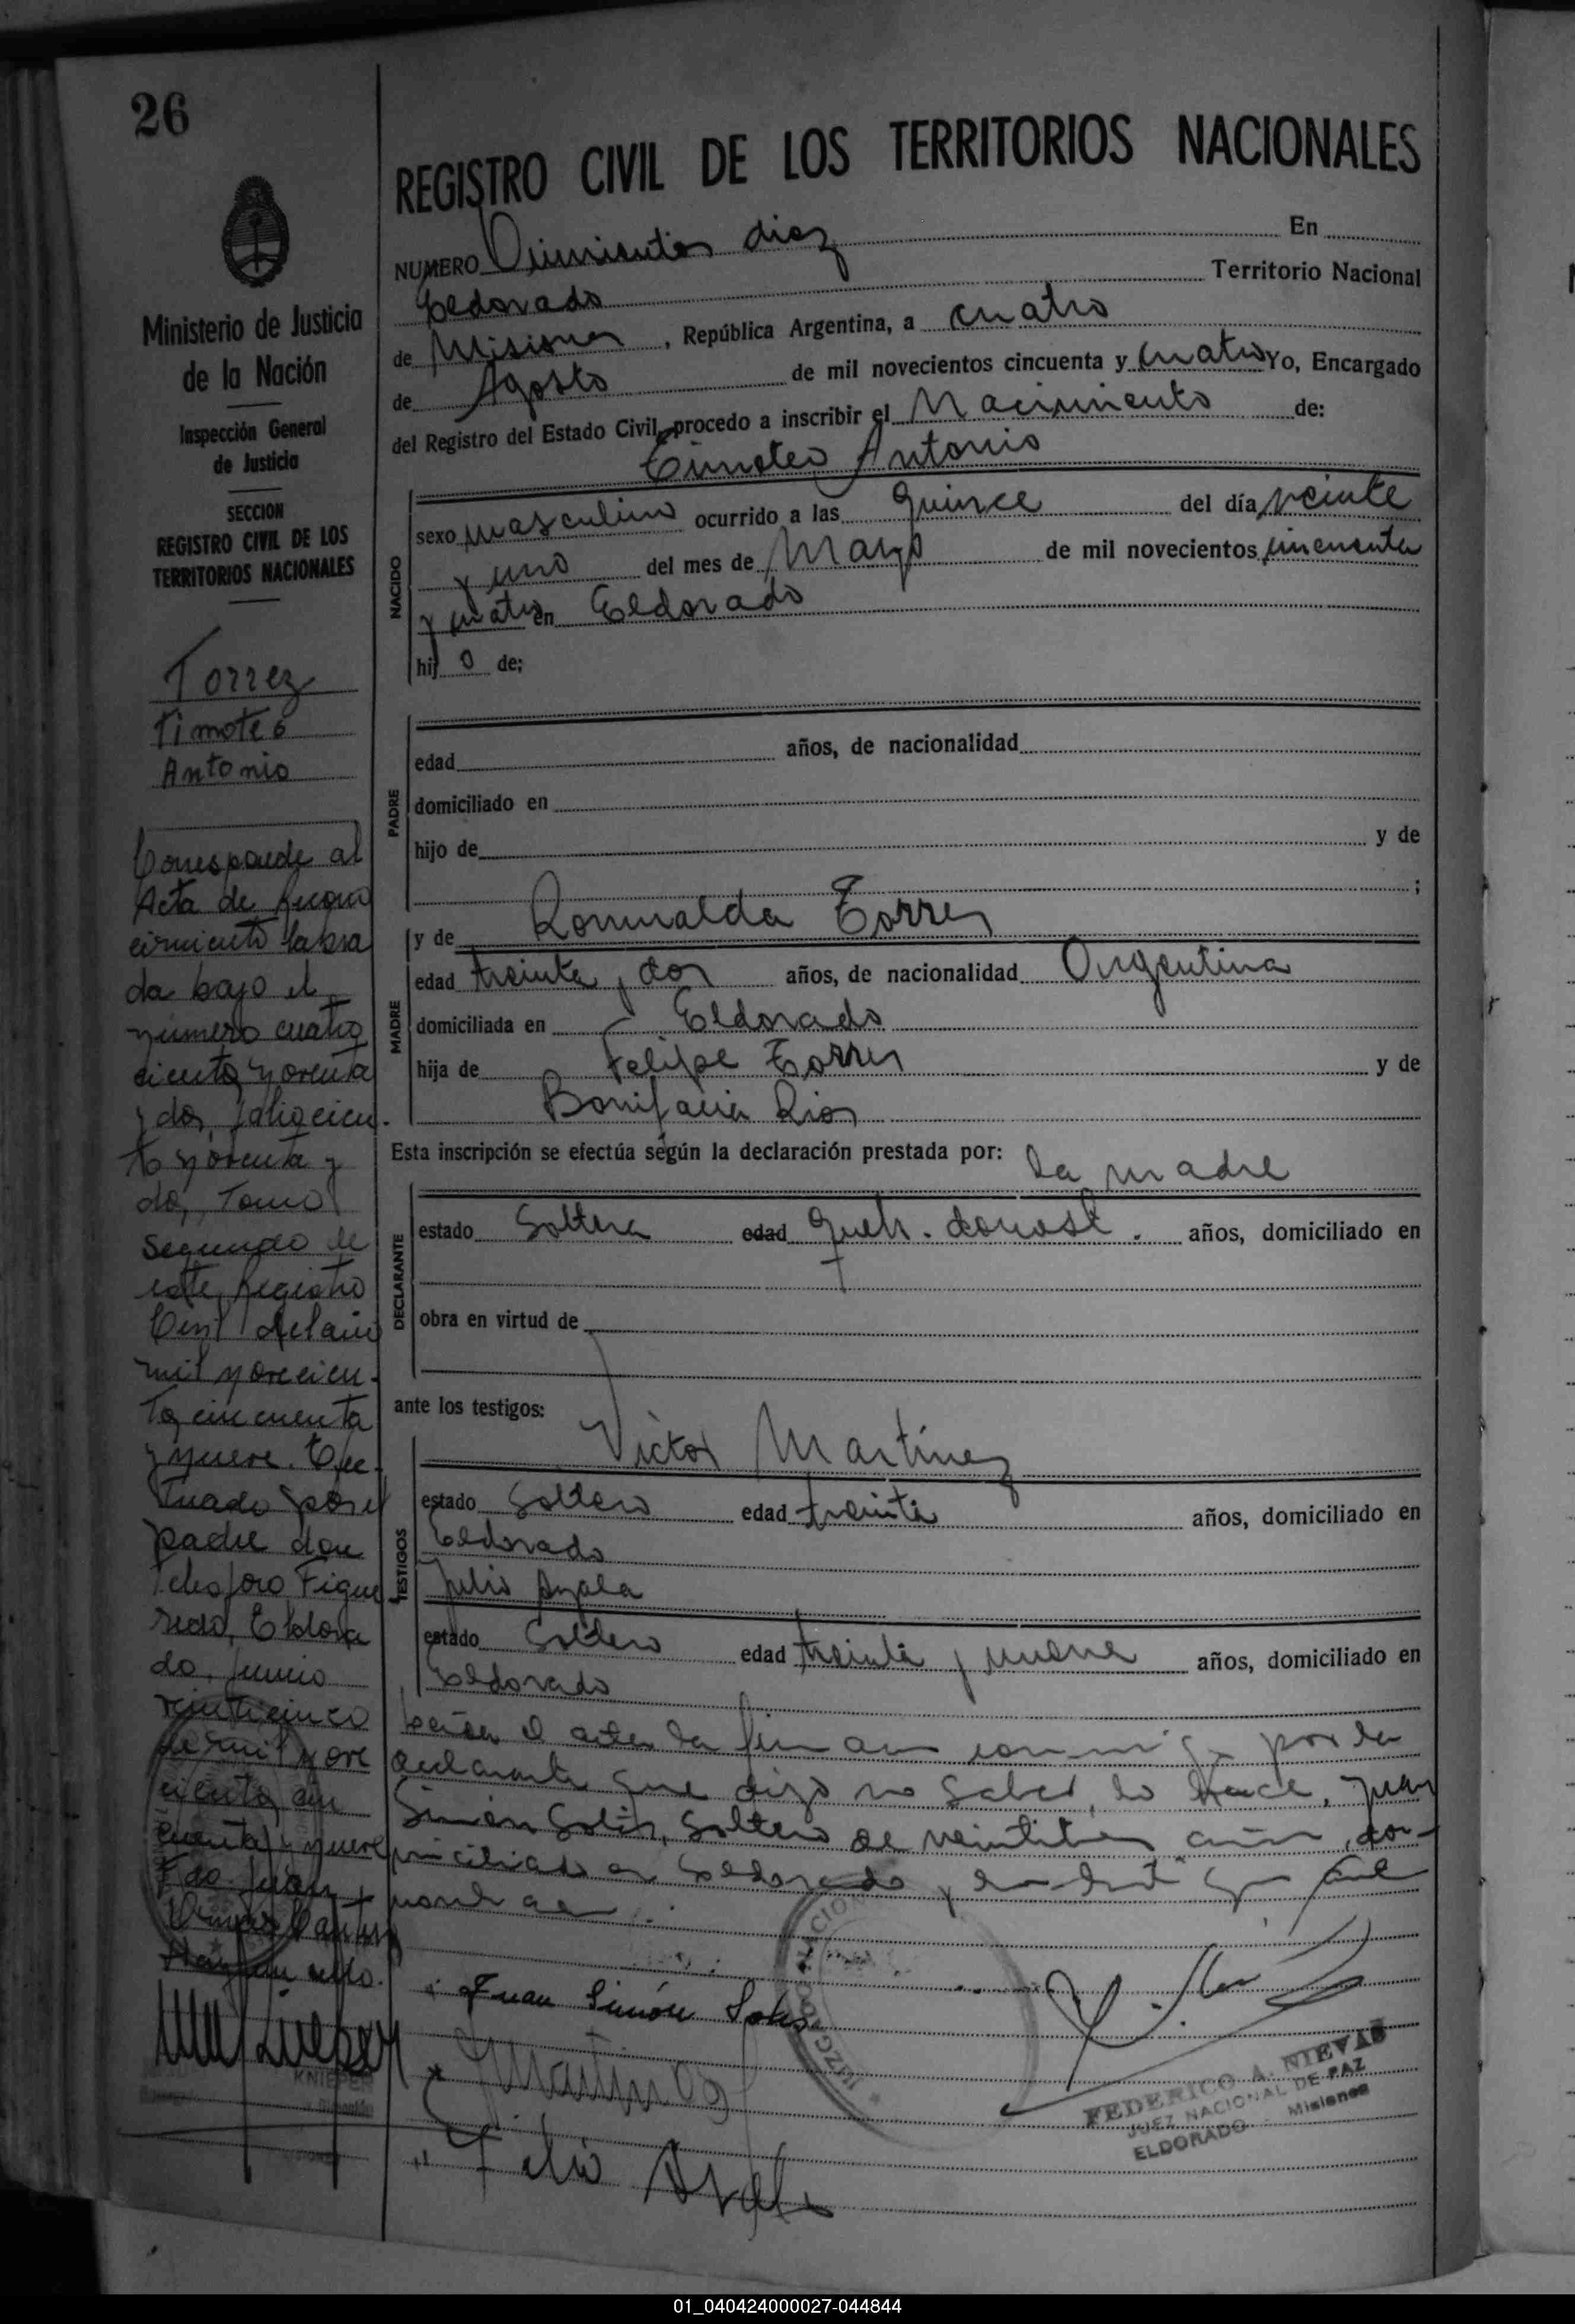 26
Ministerio de Justicia
de la Nación
Inspección General
de Justicia
SECCION
REGISTRO CIVIL DE LOS
TERRITORIOS NACIONALES
Torrez
Timoteo
Antonio
Corresponde al
Acta de
cimiento labra
da bajo el
número cuatro
cientos noventa
y dos, folio cien
to noventa y
dos, Tomo
Segundo de
este Registro
Civil del año
mil novecien
tos cincuenta
y nueve. Efec
tuado por el
padre don
Telesforo Figue
redo, Eldora
do, junio
veinticinco
de mil nove
cientos cin
cuenta y nueve
Fdo. Juan
sello.
KNIEPER
REGISTRO CIVIL DE LOS TERRITORIOS NACIONALES
NUMERO Quinientos diez En
Eldorado Territorio Nacional
de Misiones, República Argentina, a cuatro
de Agosto de mil novecientos cincuenta y cuatro Yo, Encargado
del Registro del Estado Civil, procedo a inscribir el Nacimiento de:
Timoteo Antonio
NACIDO
sexo masculino ocurrido a las quince del día veinte
y uno del mes de Marzo de mil novecientos cincuenta
y cuatro en Eldorado
hij o de;
PADRE
edad años, de nacionalidad
domiciliado en
hijo de y de
;
y de Romualda Torres
MADRE
edad treinta y dos años, de nacionalidad Argentina
domiciliada en Eldorado
hija de Felipe Torres y de
Bonifacia Rios
Esta inscripción se efectúa según la declaración prestada por: la madre
DECLARANTE
estado Soltera edad queh. domest. años, domiciliado en
obra en virtud de
ante los testigos:
Victor Martínez
TESTIGOS
estado Soltero edad treinta años, domiciliado en
Eldorado
Julio Ayala
estado Soltero edad treinta y nueve años, domiciliado en
Eldorado
el acta la firman conmigo por la
declarante que dijo no saber, lo hace, Juan
Simón Solis, Soltero de veintitres años, do-
miciliado en Eldorado
Juan Simón Solis
Martínez
Julio Ayala
FEDERICO A. NIEVAS
JUEZ NACIONAL DE PAZ
ELDORADO - Misiones
01_040424000027-044844